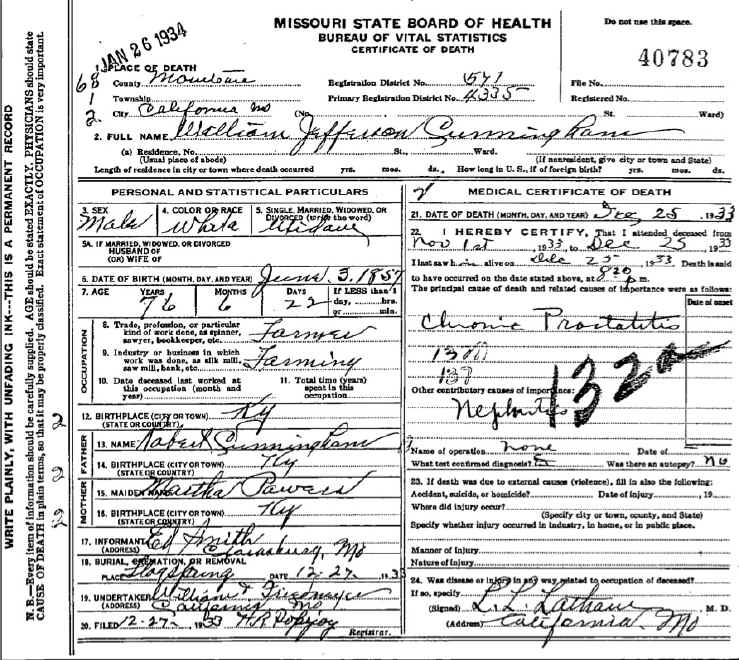 JAN 26 1934
MISSOURI STATE BOARD OF HEALTH
BUREAU OF VITAL STATISTICS
CERTIFICATE OF DEATH
Do not use this space.
40783
1. PLACE OF DEATH
County Moniteau
Registration District No. 571
File No.
Township
Primary Registration District No. 4335
Registered No.
City California Mo (No. St. Ward)
2. FULL NAME William Jefferson Cunningham
(a) Residence, No. St., Ward.
(Usual place of abode) (If nonresident, give city or town and State)
Length of residence in city or town where death occurred yrs. mos. ds. How long in U. S., if of foreign birth? yrs. mos. ds.
PERSONAL AND STATISTICAL PARTICULARS
3. SEX
Male
4. COLOR OR RACE
White
5. SINGLE, MARRIED, WIDOWED, OR
DIVORCED (write the word)
5A. IF MARRIED, WIDOWED, OR DIVORCED
HUSBAND OF
(OR) WIFE OF
6. DATE OF BIRTH (MONTH, DAY, AND YEAR) June 3. 1857
7. AGE YEARS MONTHS DAYS If LESS than 1
76 6 22 day, hrs.
or min.
OCCUPATION
8. Trade, profession, or particular
kind of work done, as spinner,
sawyer, bookkeeper, etc. Farmer
9. Industry or business in which
work was done, as silk mill,
saw mill, bank, etc. Farming
10. Date deceased last worked at
this occupation (month and
year)
11. Total time (years)
spent in this
occupation
12. BIRTHPLACE (CITY OR TOWN) Ky
(STATE OR COUNTRY)
FATHER
13. NAME Robert Cunningham
14. BIRTHPLACE (CITY OR TOWN) Ky
(STATE OR COUNTRY)
MOTHER
15. MAIDEN NAME Martha Powers
16. BIRTHPLACE (CITY OR TOWN) Ky
(STATE OR COUNTRY)
17. INFORMANT Ed Smith
(ADDRESS) Mo
18. BURIAL, CREMATION, OR REMOVAL
PLACE DATE 12-27 1933
19. UNDERTAKER William
(ADDRESS) California Mo
20. FILED 12-27 1933 H R Popejoy
Registrar.
MEDICAL CERTIFICATE OF DEATH
21. DATE OF DEATH (MONTH, DAY, AND YEAR) Dec 25 1933
22. I HEREBY CERTIFY, That I attended deceased from
Nov 1st, 1933, to Dec 25 1933
I last saw h alive on Dec 25 1933 Death is said
to have occurred on the date stated above, at 820 pm.
The principal cause of death and related causes of importance were as follows:
Date of onset
Chronic Prostatitis
137
132a
Other contributory causes of importance:
Nephritis
Name of operation none Date of
What test confirmed diagnosis? Was there an autopsy? no
23. If death was due to external causes (violence), fill in also the following:
Accident, suicide, or homicide? Date of injury, 19
Where did injury occur?
(Specify city or town, county, and State)
Specify whether injury occurred in industry, in home, or in public place.
Manner of Injury
Nature of Injury
24. Was disease or injury in any way related to occupation of deceased?
If so, specify
(Signed) L. L. Latham M. D.
(Address) California Mo
WRITE PLAINLY, WITH UNFADING INK---THIS IS A PERMANENT RECORD
N. B.—Every item of information should be carefully supplied. AGE should be stated EXACTLY. PHYSICIANS should state
CAUSE OF DEATH in plain terms, so that it may be properly classified. Exact statement of OCCUPATION is very important.